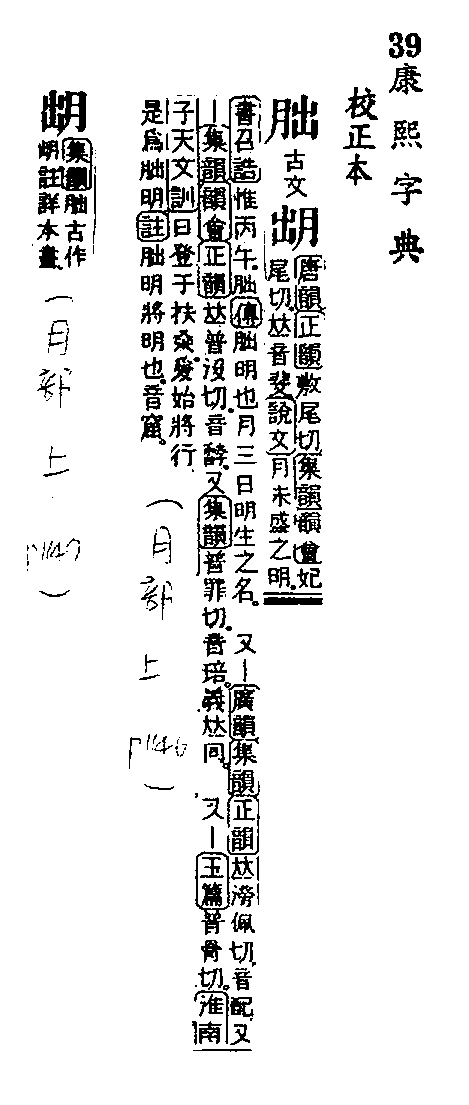 39
康熙字典
校正本
朏
古文
𣍧
唐韻正韻敷尾切集韻韻會妃
尾切𠀤音斐說文月未盛之明
書召誥惟丙午朏傳朏明也月三日明生之名。又一廣韻集韻正韻𠀤滂佩切音配又
一集韻韻會正韻𠀤普沒切音馞又集韻普罪切音琣義𠀤同。又一玉篇普骨切淮南
子天文訓日登于扶桑爰始將行
是爲朏明註朏明將明也音窟。
(月部 上 P1146)
集韻朏古作
註詳本畫
(月部 上 P1147)